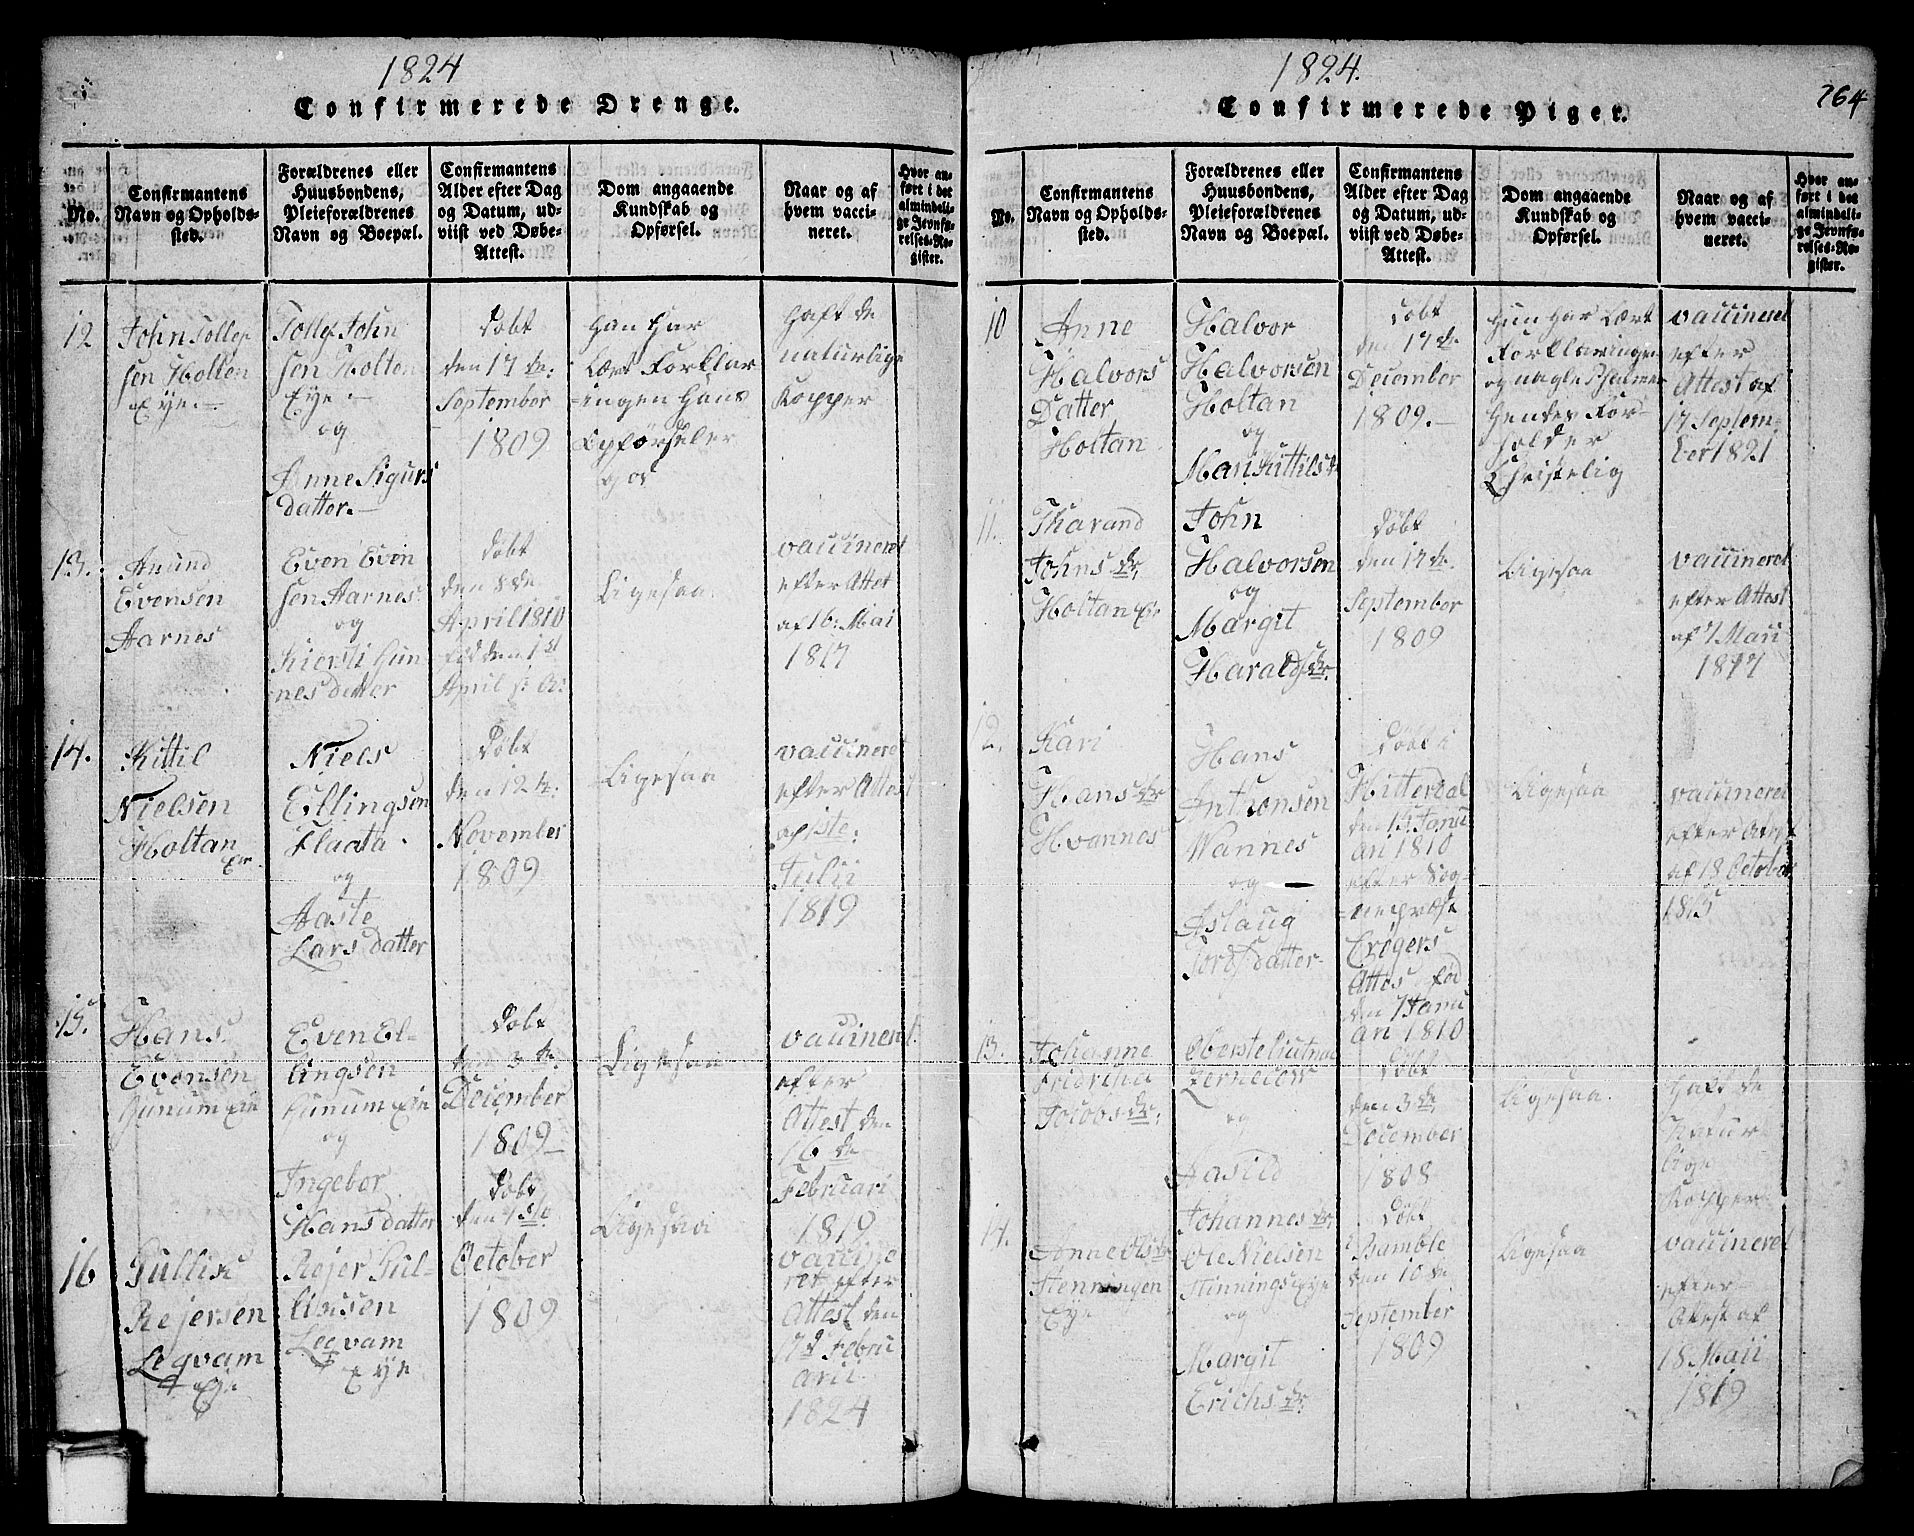 1824
Confirmerede Drenge.
No.
Confirmantens
Navn og Opholds-
sted.
Forældrenes eller
Huusbondens,
Pleieforældrenes
Navn og Boepæl.
Confirmantens
Alder efter Dag
og Datum, ud-
viist ved Døbe-
Attest.
Dom angaaende
Kundskab og
Opførsel.
Naar og af
hvem vacci-
neret.
Hvor an-
ført i det
almindeli-
ge Jevnfø-
relses-Re-
gister.
12
John Tollef
sen Holten
Eye.
Tollef John
sen Holten
Eye
og
Anne Sigurs
datter.
døbt
den 17 de.
September
1809
Han Har
Lært Forklar
ingen Hans
Opførseler
god
Haft de
naturlige
Kopper
13.
Amund
Evensen
Aarnes
Even Even
sen Aarnes
og
Kiersti Gun
nesdatter
døbt
den 8 de
April 1810
fød den 1 st
April s: A:
Ligesaa
vaccineret
efter Attest
af 16: Mai
1817
14.
Kittil
Nielsen
Holtan
Eie
Niels
Ellingsen
Flaata
og
Aaste
Lars datter
Døbt
den 12 te.
November
1809
Ligesaa
vaccineret
efter Attest
af 1ste:
Julii
1819
15.
Hans
Evensen
Gunum Eie
Even El-
lingsen
Gunum Eie
og
Ingebor
Hans datter
Døbt
den 3 de.
December
1809
Ligesaa
vaccineret
efter
Attest den
16 de
Februari
1819
16
Gullik
Rejersen
Legvam
Eje
Rejer Gul-
liksen
Legvam
Eye
Døbt
den 1 ste
October
1809
Ligesaa
vaccine
ret efter
Attest den
7 d Febru
arii
1824
1824.
764
Confirmerede Piger.
No.
Confirmantens
Navn og Opholds-
sted.
Forældrenes eller
Huusbondens,
Pleieforældrenes
Navn og Boepæl.
Confirmantens
Alder efter Dag
og Datum, ud-
viist ved Døbe-
Attest.
Dom angaaende
Kundskab og
Opførsel.
Naar og af
hvem vacci-
neret.
Hvor an-
ført i det
almindeli-
ge Jevnfø-
relses-Re-
gister.
10
Anne
Halvors
Datter
Holtan
Halvor
Halvorsen
Holtan
og
Mari Kittilsdr
døbt
den 17 de.
December
1809.
Hun Har Lært
Forklaringen
og nogle Psalmer
Hendes For-
holder
Christelig
vaccineret
efter
Attest af
17 Septem
ber 1821
11.
Tharand
Johns dr.
Holtan Ei
John
Halvorsen
og
Margit
Haralds dr.
døbt
den 17 de.
September
1809
Ligesaa
vaccineret
efter Attest
af 7 Maii
1817
12.
Kari
Hans dr
Hvannes
Hans
Anthonsen
Wannes
og
Aslaug
Tordsdatter
Døbt i
Hitterdal
den 14 Janu
ari 1810
efter Sog-
nepræst
Crøgers
Attes fød
den 7 Janu
ari 1810
Ligesaa
vaccineret
efter Attest
af 18 October
1815
13.
Johanne
Fridricha
Jocobs dr.
Oberstelieutnant
Zernecow
og
Aasild
Johannes dr.
Døbt
den 3 de.
December
1808
Ligesaa.
Haft de
Natur
lige
Kopper
14.
Anne Ols dr
Stenningen
Eye
Ole Nielsen
Stinnings Eye
og
Margit
Erichs dr.
Døbt
Bamble
den 10 de
September
1809
Ligesaa
vaccineret
efter
Attest af
18 Maii
1819